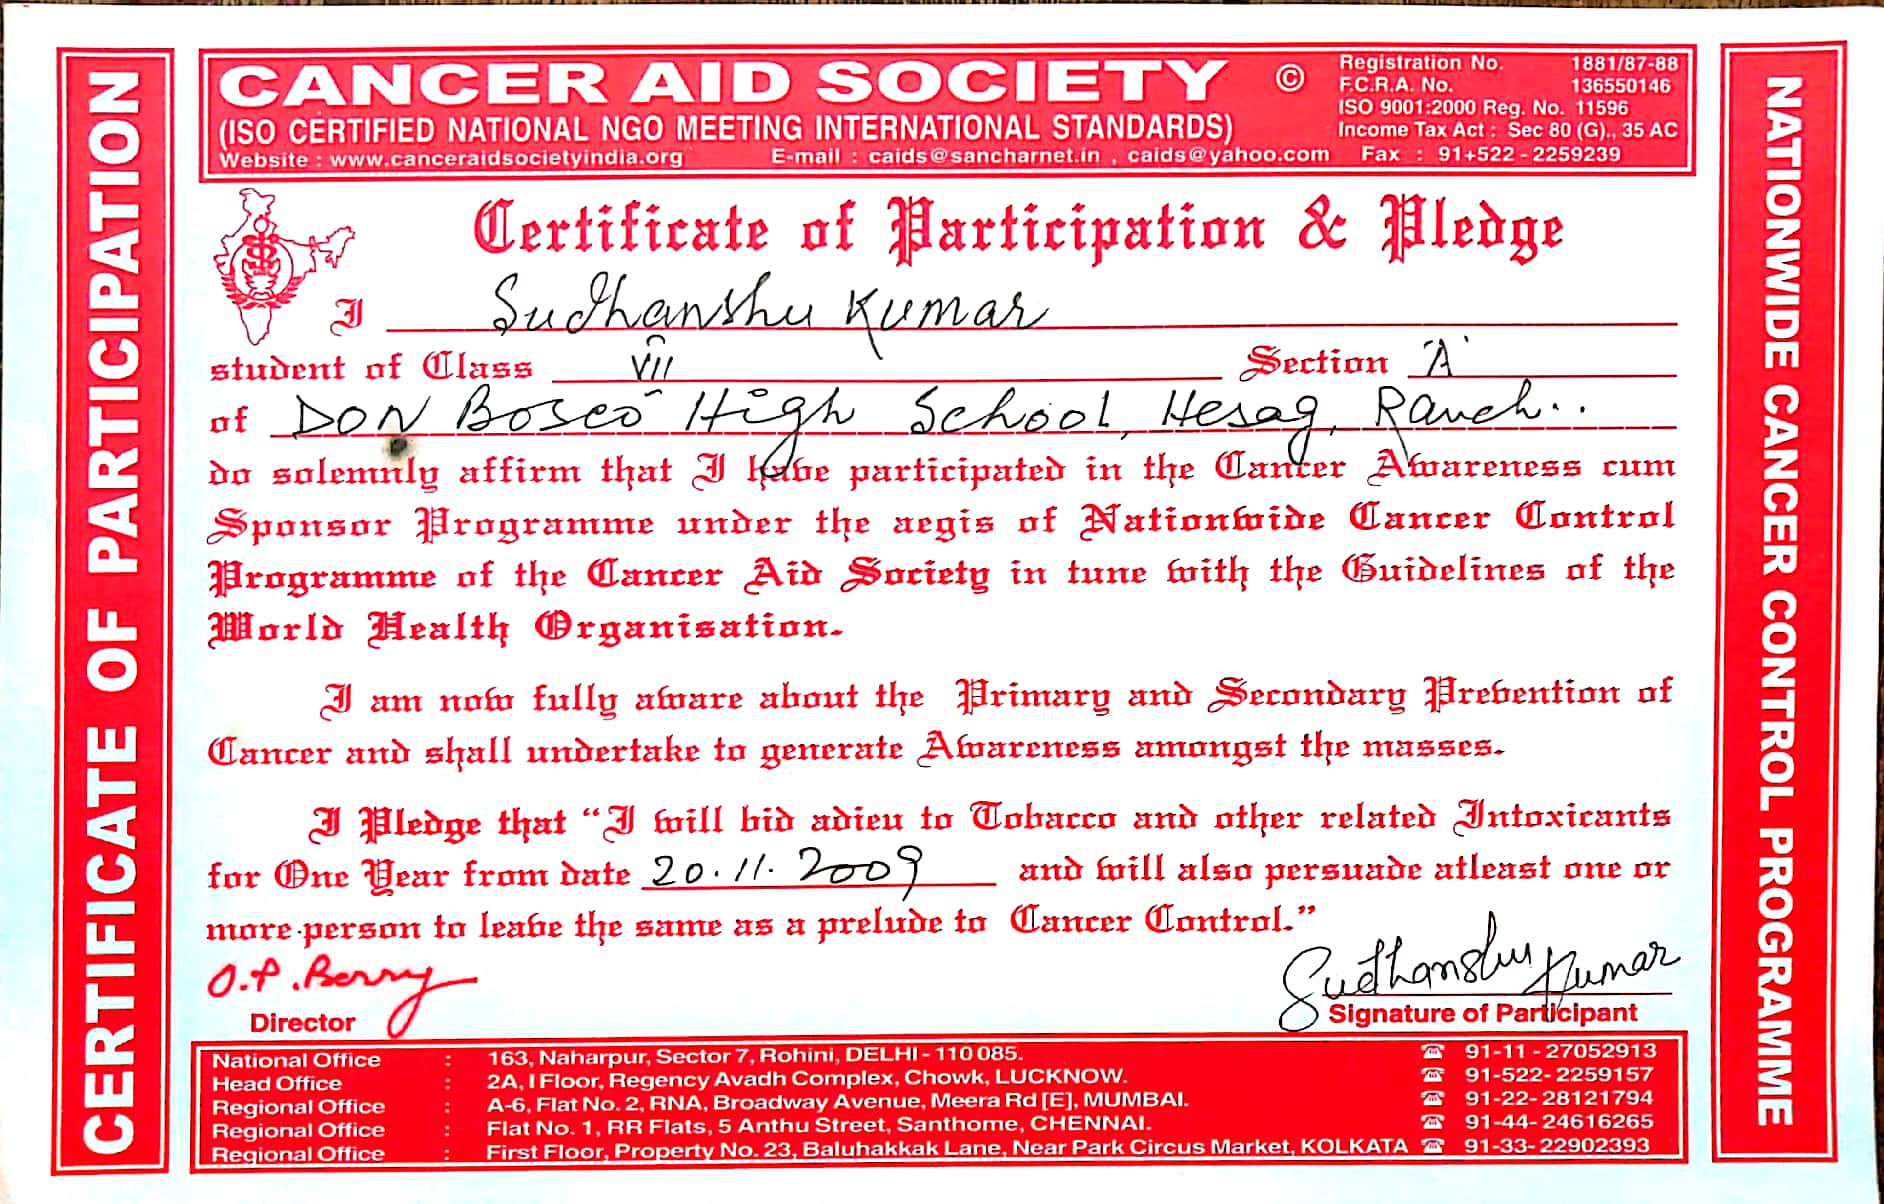 CERTIFICATE OF PARTICIPATION
CANCER AID SOCIETY ©
(ISO CERTIFIED NATIONAL NGO MEETING INTERNATIONAL STANDARDS)
Website : www.canceraidsocietyindia.org E-mail : caids@sancharnet.in , caids@yahoo.com Fax : 91+522 - 2259239
Registration No. 1881/87-88
F.C.R.A. No. 136550146
ISO 9001:2000 Reg. No. 11596
Income Tax Act : Sec 80 (G)., 35 AC
Certificate of Participation & Pledge
I Sudhanshu Kumar
student of Class VII Section 'A'
of DON Bosco High School, Hesag, Ranch..
do solemnly affirm that I have participated in the Cancer Awareness cum
Sponsor Programme under the aegis of Nationwide Cancer Control
Programme of the Cancer Aid Society in tune with the Guidelines of the
World Health Organisation.
I am now fully aware about the Primary and Secondary Prevention of
Cancer and shall undertake to generate Awareness amongst the masses.
I Pledge that “I will bid adieu to Tobacco and other related Intoxicants
for One Year from date 20.11.2009 and will also persuade atleast one or
more person to leave the same as a prelude to Cancer Control.”
O.P. Berry
Director
Sudhanshu Kumar
Signature of Participant
National Office : 163, Naharpur, Sector 7, Rohini, DELHI - 110 085. ☎ 91-11 - 27052913
Head Office : 2A, I Floor, Regency Avadh Complex, Chowk, LUCKNOW. ☎ 91-522- 2259157
Regional Office : A-6, Flat No. 2, RNA, Broadway Avenue, Meera Rd [E], MUMBAI. ☎ 91-22- 28121794
Regional Office : Flat No. 1, RR Flats, 5 Anthu Street, Santhome, CHENNAI. ☎ 91-44- 24616265
Regional Office : First Floor, Property No. 23, Baluhakkak Lane, Near Park Circus Market, KOLKATA ☎ 91-33- 22902393
NATIONWIDE CANCER CONTROL PROGRAMME